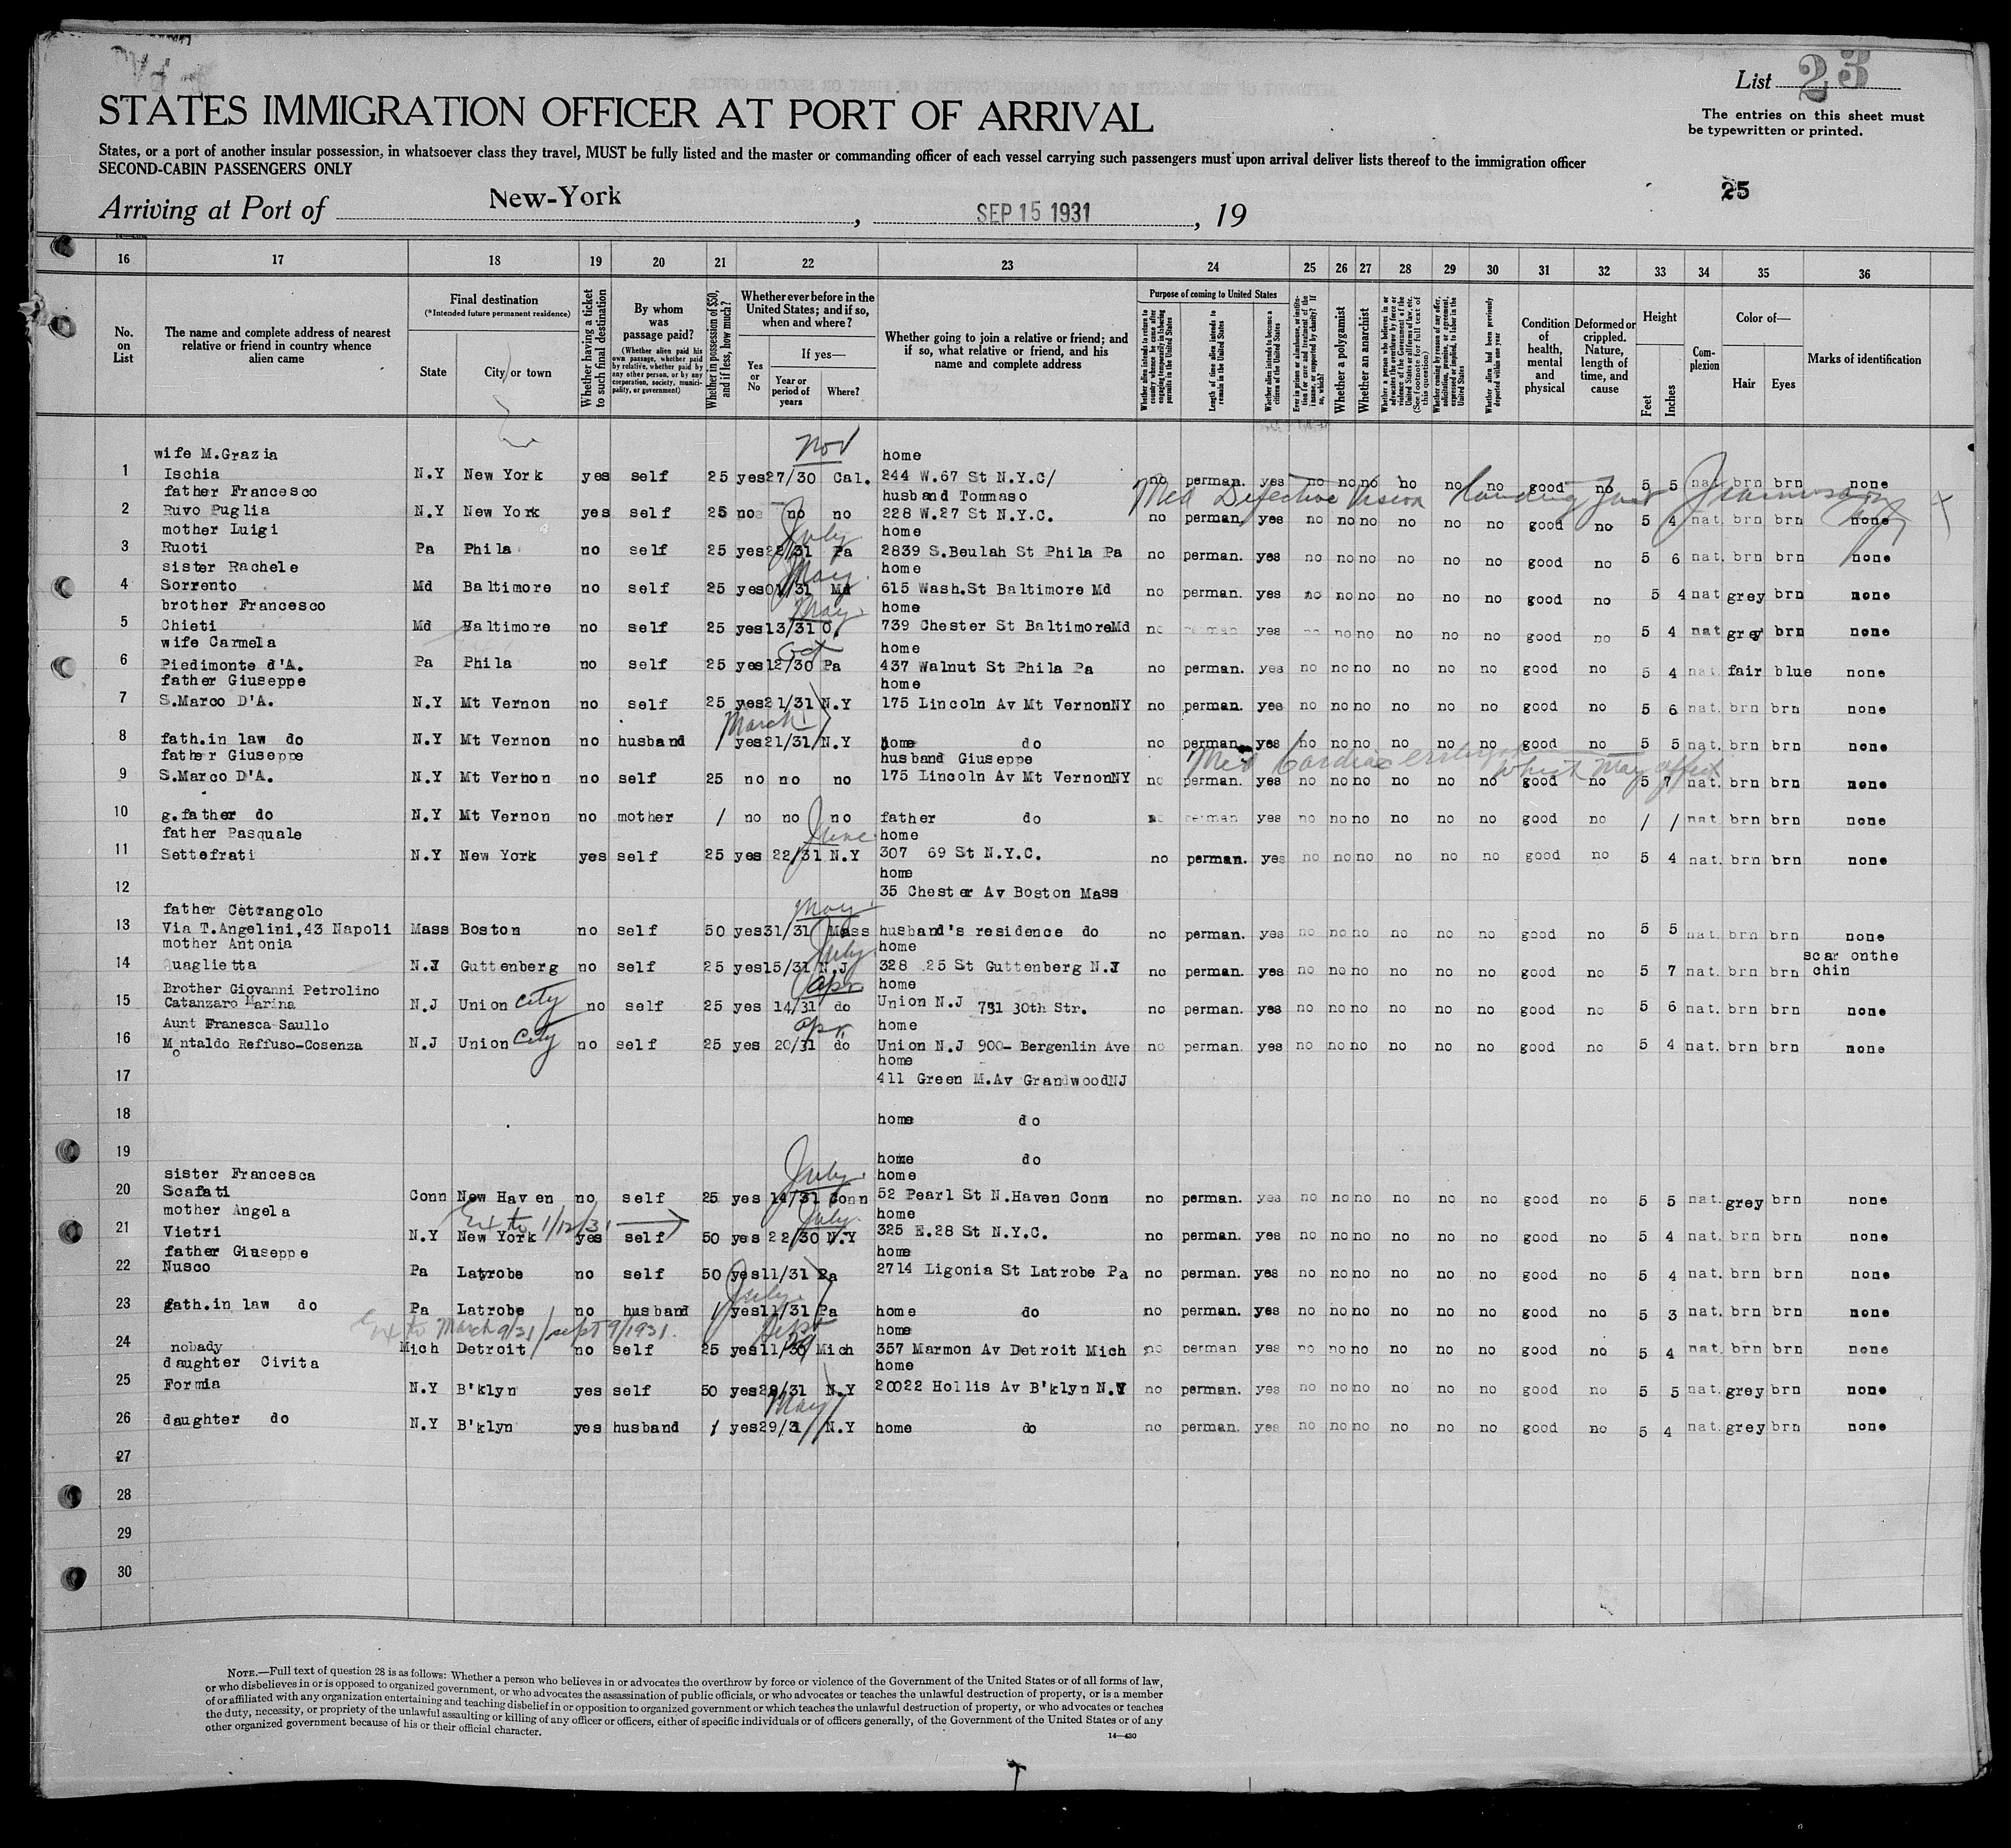 List 23
STATES IMMIGRATION OFFICER AT PORT OF ARRIVAL
The entries on this sheet must
be typewritten or printed.
States, or a port of another insular possession, in whatsoever class they travel, MUST be fully listed and the master or commanding officer of each vessel carrying such passengers must upon arrival deliver lists thereof to the immigration officer
SECOND-CABIN PASSENGERS ONLY
25
Arriving at Port of New-York, SEP 15 1931, 19
16 17 18 19 20 21 22 23 24 25 26 27 28 29 30 31 32 33 34 35 36
No. on List
The name and complete address of nearest relative or friend in country whence alien came
Final destination
(*Intended future permanent residence)
State
City or town
Whether having a ticket to such final destination
By whom was passage paid?
(Whether alien paid his own passage, whether paid by relative, whether paid by any other person, or by any corporation, society, municipality, or government)
Whether in possession of $50, and if less, how much?
Whether ever before in the United States; and if so, when and where?
Yes or No
If yes—
Year or period of years
Where?
Whether going to join a relative or friend; and if so, what relative or friend, and his name and complete address
Purpose of coming to United States
Whether alien intends to return to country whence he came after engaging temporarily in laboring pursuits in the United States
Length of time alien intends to remain in the United States
Whether alien intends to become a citizen of the United States
Ever in prison or almshouse, or institution for care and treatment of the insane, or supported by charity? If so, which?
Whether a polygamist
Whether an anarchist
Whether a person who believes in or advocates the overthrow by force or violence of the Government of the United States or all forms of law, etc. (See footnote for full text of this question)
Whether coming by reason of any offer, solicitation, promise, or agreement, expressed or implied, to labor in the United States
Whether alien had been previously deported within one year
Condition of health, mental and physical
Deformed or crippled. Nature, length of time, and cause
Height
Feet
Inches
Complexion
Color of—
Hair
Eyes
Marks of identification
wife M.Grazia Nov home
1 Ischia N.Y New York yes self 25 yes 27/30 Cal. 244 W.67 St N.Y.C/ no perman. yes no no no no no no good no 5 5 nat brn brn none
Med Defective Vision
father Francesco husband Tommaso
2 Ruvo Puglia N.Y New York yes self 25 no no no 228 W.27 St N.Y.C. no perman, yes no no no no no no good no 5 4 nat. brn brn none
mother Luigi July home
3 Ruoti Pa Phila no self 25 yes 22/31 Pa 2839 S.Beulah St Phila Pa no perman. yes no no no no no no good no 5 6 nat. brn brn none
sister Rachele May home
4 Sorrento Md Baltimore no self 25 yes 01/31 Md 615 Wash.St Baltimore Md no perman. yes no no no no no no good no 5 4 nat grey brn none
brother Francesco May home
5 Chieti Md Baltimore no self 25 yes 13/31 O. 739 Chester St BaltimoreMd no perman yes no no no no no no good no 5 4 nat grey brn none
wife Carmela Oct home
6 Piedimonte d'A. Pa Phila no self 25 yes 12/30 Pa 437 Walnut St Phila Pa no perman. yes no no no no no no good no 5 4 nat. fair blue none
father Giuseppe home
7 S.Marco D'A. N.Y Mt Vernon no self 25 yes 21/31 N.Y 175 Lincoln Av Mt VernonNY no perman. yes no no no no no no good no 5 6 nat. brn brn none
March
8 fath.in law do N.Y Mt Vernon no husband / yes 21/31 N.Y home do no perman. yes no no no no no no good no 5 5 nat. brn brn none
father Giuseppe husband Giuseppe Med Cardiac which may affect
9 S.Marco D'A. N.Y Mt Vernon no self 25 no no no 175 Lincoln Av Mt VernonNY no perman. yes no no no no no no good no 5 7 nat. brn brn none
10 g.father do N.Y Mt Vernon no mother / no no no father do no perman yes no no no no no no good no / / nat brn brn none
father Pasquale June home
11 Settefrati N.Y New York yes self 25 yes 22/31 N.Y 307 69 St N.Y.C. no perman. yes no no no no no no good no 5 4 nat. brn brn none
home
12 35 Chester Av Boston Mass
father Cetrangolo May
13 Via T.Angelini,43 Napoli Mass Boston no self 50 yes 31/31 Mass husband's residence do no perman. yes no no no no no no good no 5 5 nat. brn brn none
mother Antonia July home scar onthe
14 Quaglietta N.J Guttenberg no self 25 yes 15/31 N.J 328 25 St Guttenberg N.J no perman. yes no no no no no no good no 5 7 nat. brn brn chin
Brother Giovanni Petrolino Apr home
15 Catanzaro Marina N.J Union City no self 25 yes 14/31 do Union N.J 731 30th Str. no perman. yes no no no no no no good no 5 6 nat. brn brn none
Aunt Franesca Saullo Apr. home
16 Montaldo Reffuso-Cosenza N.J Union City no self 25 yes 20/31 do Union N.J 900- Bergenlin Ave no perman. yes no no no no no no good no 5 4 nat. brn brn none
home
17 411 Green M.Av GrandwoodNJ
18 home do
19 home do
sister Francesca July home
20 Scafati Conn New Haven no self 25 yes 14/31 Conn 52 Pearl St N.Haven Conn no perman. yes no no no no no no good no 5 5 nat. grey brn none
mother Angela Ext to 1/12/31 July home
21 Vietri N.Y New York yes self 50 yes 22/30 N.Y 325 E.28 St N.Y.C. no perman. yes no no no no no no good no 5 4 nat. brn brn none
father Giuseppe home
22 Nusco Pa Latrobe no self 50 yes 11/31 Pa 2714 Ligonia St Latrobe Pa no perman. yes no no no no no no good no 5 4 nat. brn brn none
July
23 fath.in law do Pa Latrobe no husband / yes 11/31 Pa home do no perman. yes no no no no no no good no 5 3 nat. brn brn none
Ext to March 9/31/ sept 9/1931. Sept home
24 nobady Mich Detroit no self 25 yes 11/30 Mich 357 Marmon Av Detroit Mich no perman yes no no no no no no good no 5 4 nat. brn brn none
daughter Civita home
25 Formia N.Y B'klyn yes self 50 yes 29/31 N.Y 20022 Hollis Av B'klyn N.Y no perman. yes no no no no no no good no 5 5 nat. grey brn none
May
26 daughter do N.Y B'klyn yes husband / yes 29/3 N.Y home do no perman. yes no no no no no no good no 5 4 nat. grey brn none
27
28
29
30
NOTE.—Full text of question 28 is as follows: Whether a person who believes in or advocates the overthrow by force or violence of the Government of the United States or of all forms of law,
or who disbelieves in or is opposed to organized government, or who advocates the assassination of public officials, or who advocates or teaches the unlawful destruction of property, or is a member
of or affiliated with any organization entertaining and teaching disbelief in or opposition to organized government or which teaches the unlawful destruction of property, or who advocates or teaches
the duty, necessity, or propriety of the unlawful assaulting or killing of any officer or officers, either of specific individuals or of officers generally, of the Government of the United States or of any
other organized government because of his or their official character.
14—430